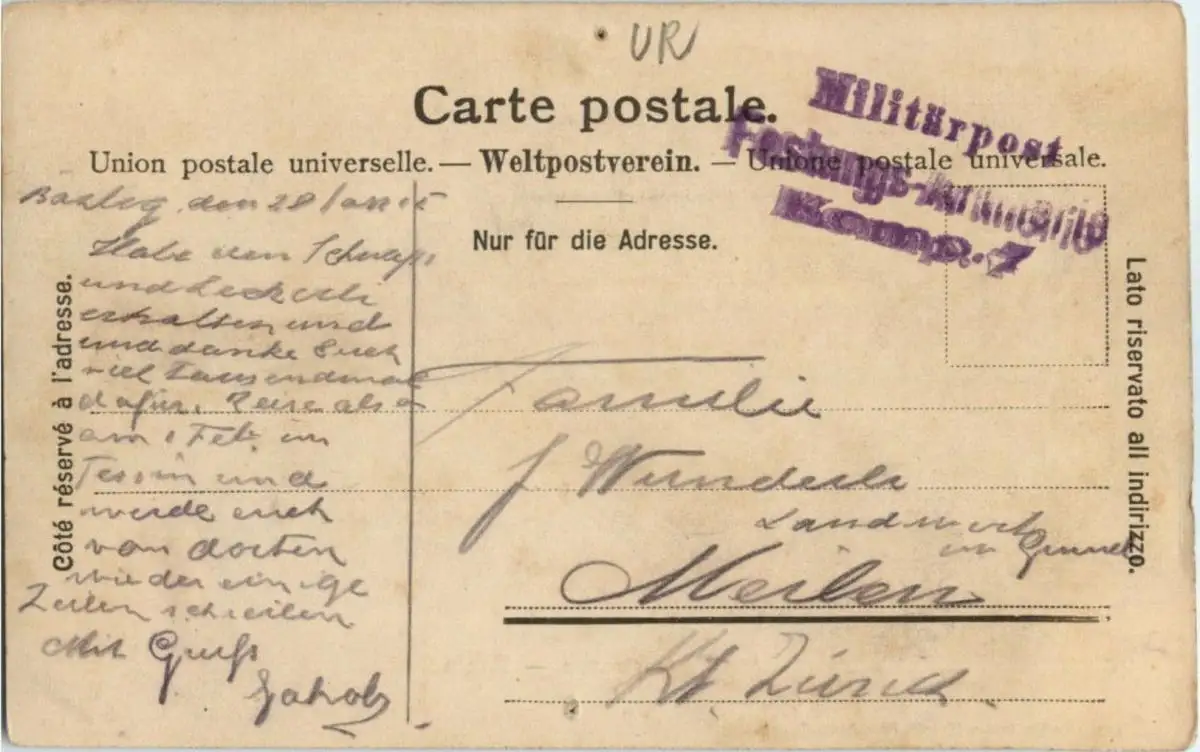 UR
Carte postale.
Militärpost
Festungs-Artillerie
Komp. 7
Union postale universelle. — Weltpostverein. — Unione postale universale.
Nur für die Adresse.
Côté réservé à l'adresse.
Lato riservato all indirizzo.
den 28 Jan 15
Habe den Schnaps
und Leckerli
erhalten und
und danke Euch
viel Tausendmal
dafür. Reise also
am 1 Feb. in
Tessin und
werde euch
von dorten
wieder einige
Zeilen schreiben
Mit Gruß
Jakob
Familie
J Wunderli
Landwirt
in
Meilen
Kt. Zürich